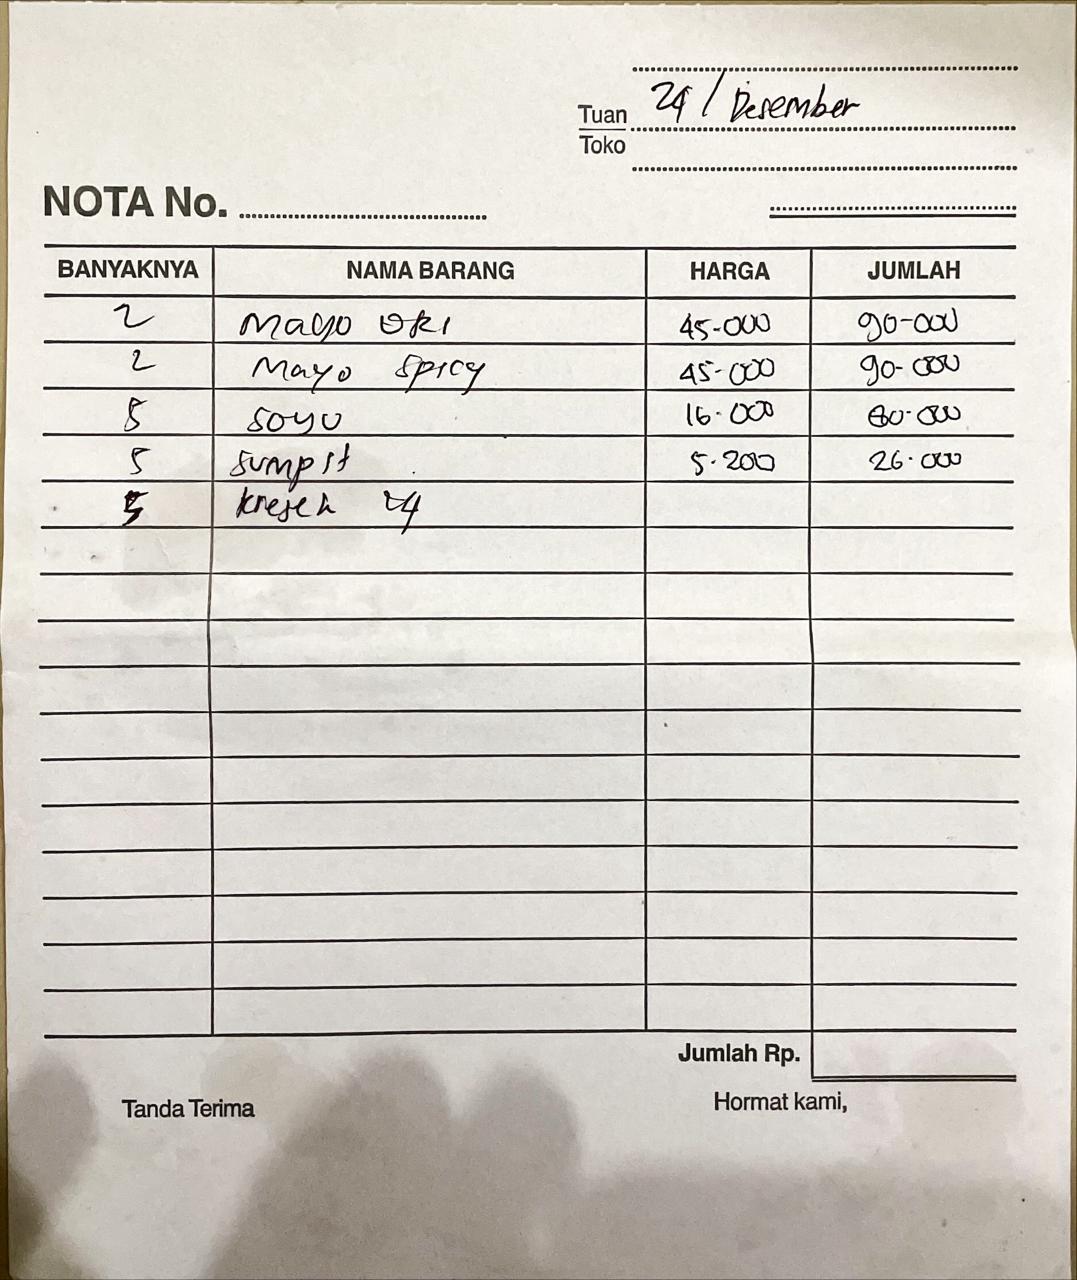 24 / Desember
Tuan
Toko
NOTA No.
BANYAKNYA NAMA BARANG HARGA JUMLAH
2 Mayo Ori 45.000 90.000
2 Mayo Spicy 45.000 90.000
5 Soyu 16.000 80.000
5 Sumpit 5.200 26.000
5 Kresek 24
Jumlah Rp.
Tanda Terima Hormat kami,